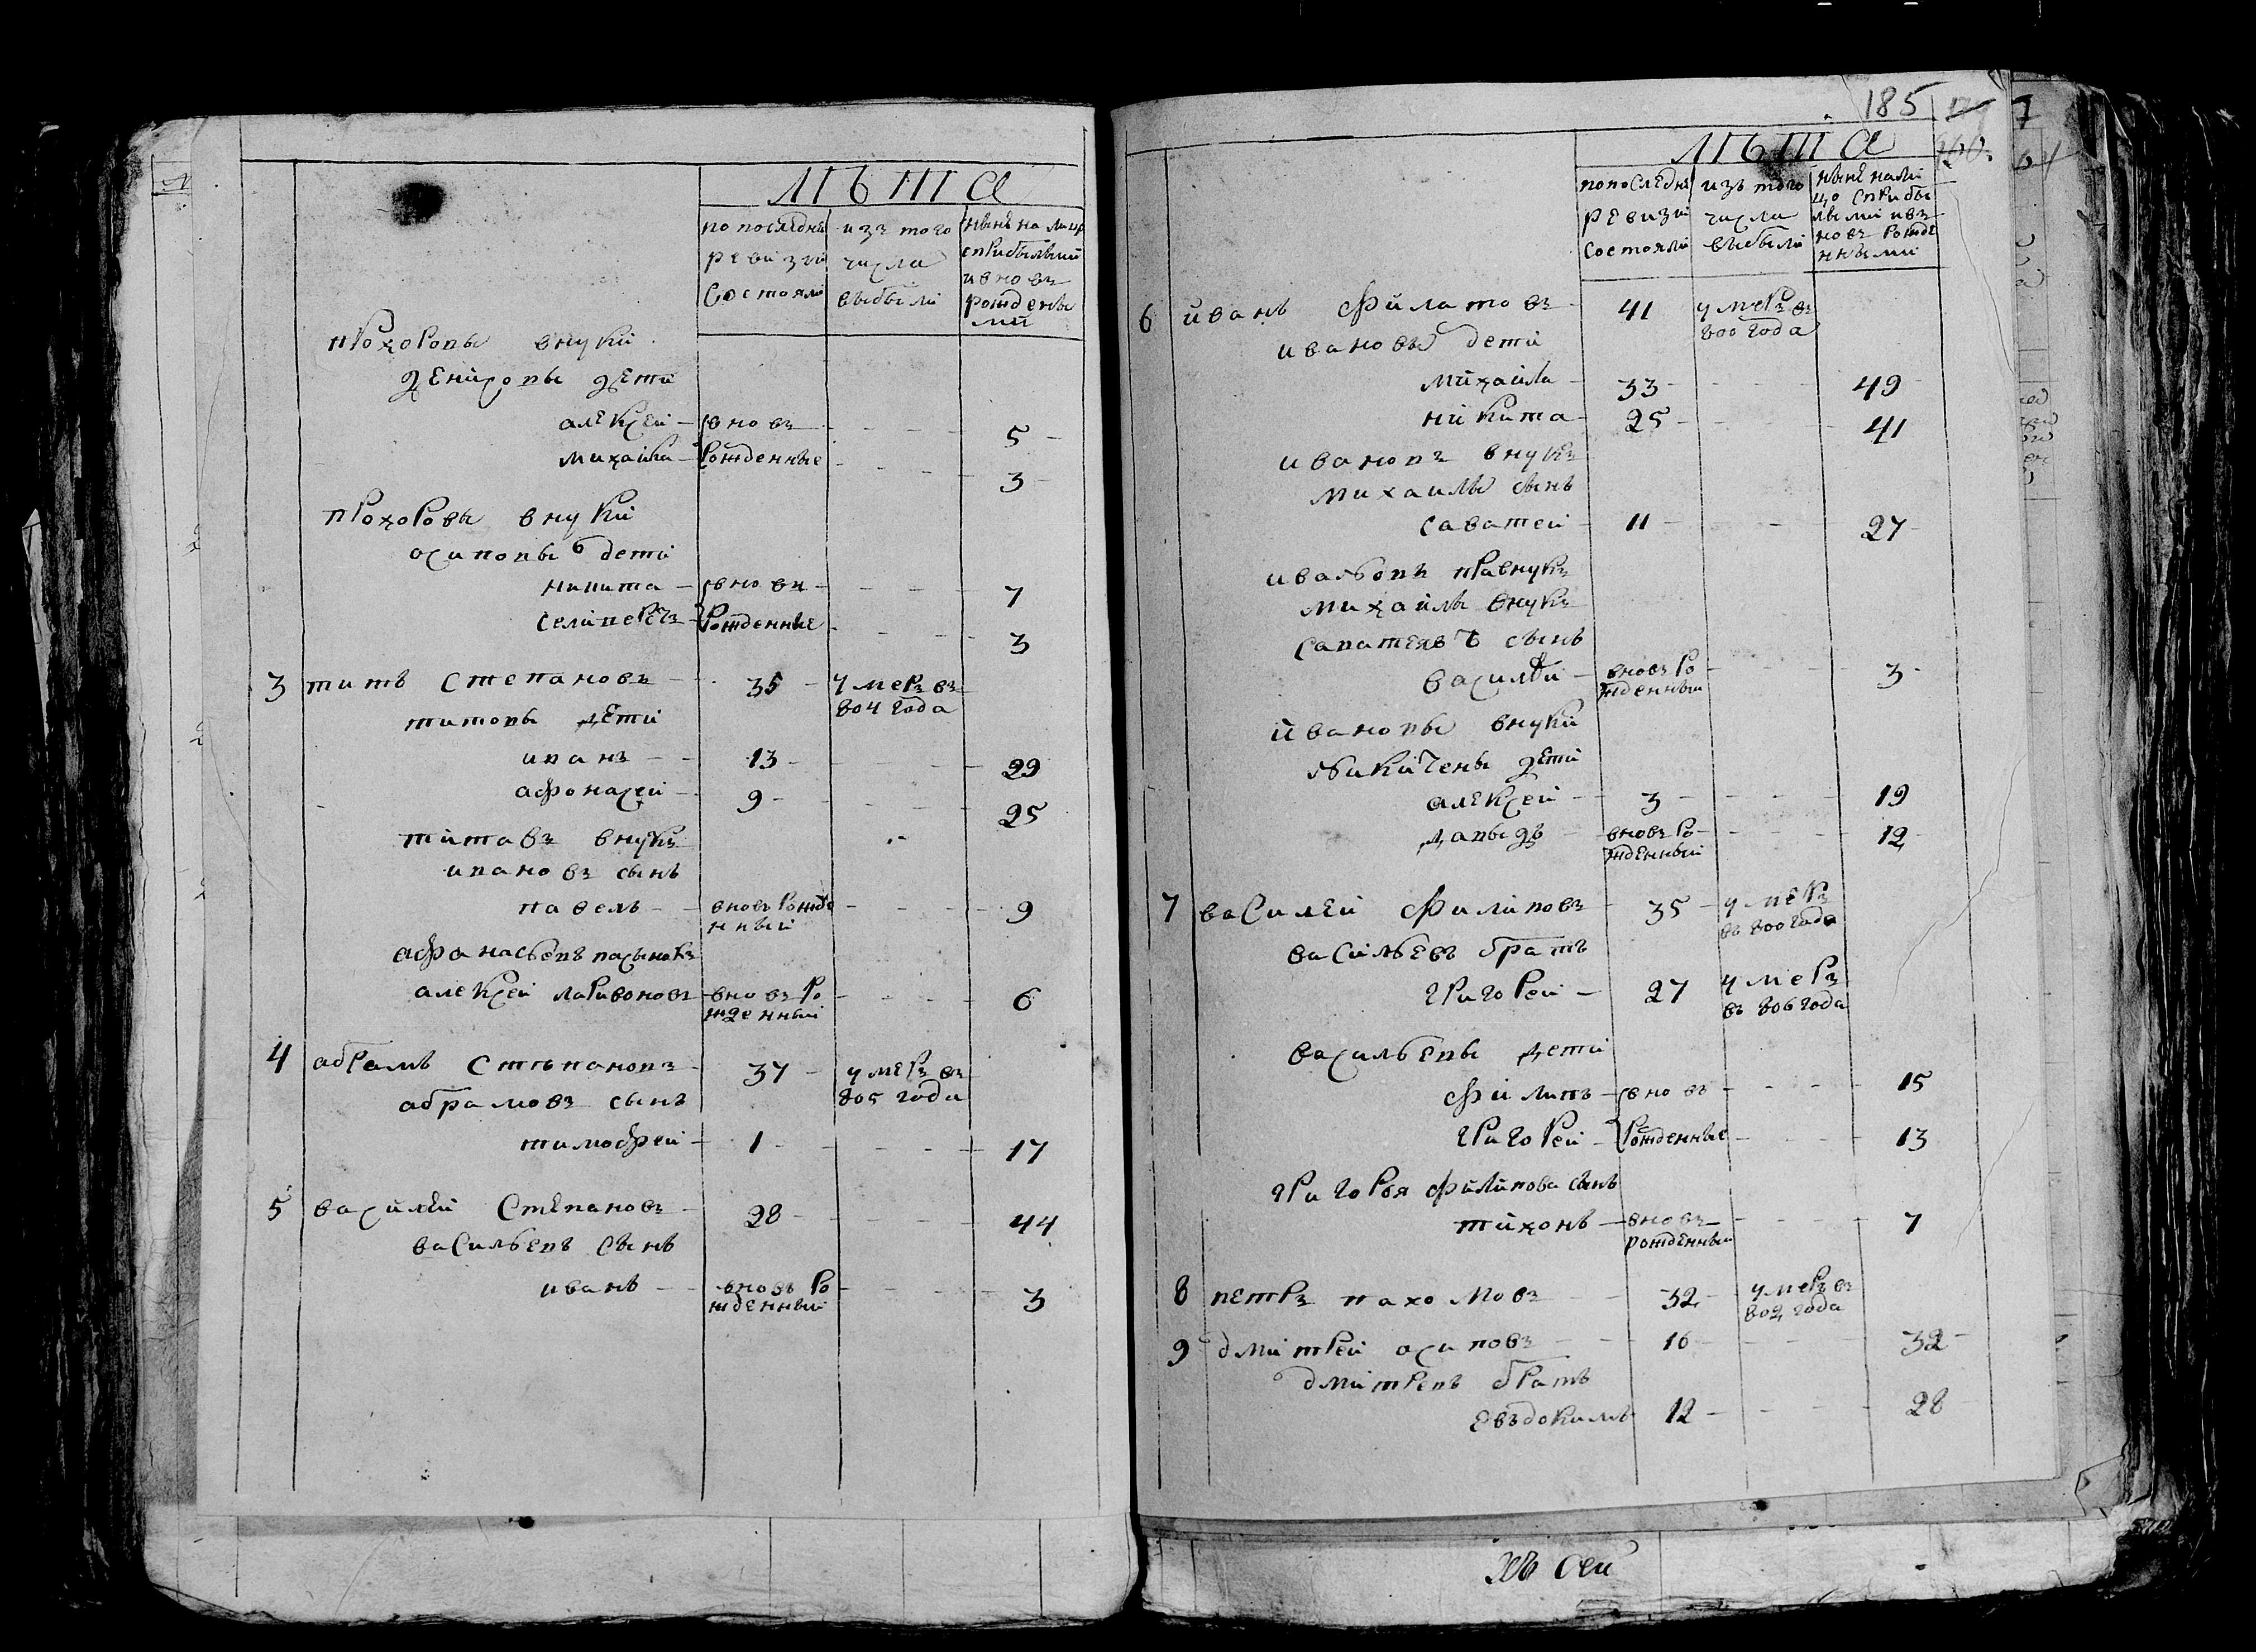 лѣта
по последнѣ
ревизіи
состояли
изъ того
числа
выбыли
нынѣ на лицо
с прибылыми
и вновь
рожденны
ми
прохоровы внуки
денисовы дети
алексей вновь 5
михайла рожденные 3
прохоровы внуки
осиповы дети
никита вновь 7
селиверстъ рожденные 3
3 титъ степановъ 35 умеръ въ
804 года
титовы дети
иванъ 13 29
афонасей 9 25
титавъ внукъ
ивановъ сынъ
павелъ вновь рожде 9
нный
афанасьевъ пасынокъ
алексей ларивоновъ вновь ро 6
жденный
4 абрамъ стѣпановъ 37 умеръ въ
805 года
абрамовъ сынъ
тимофей 1 17
5 василей степановъ 28 44
васильевъ сынъ
иванъ вновь ро 3
жденный
185
лѣта
по последнѣ
ревизіи
состояли
изъ того
числа
выбыли
нынѣ нали
цо с прибы
лыми и въ
новь рожде
нными
6 иванъ филатовъ 41 умеръ въ
800 года
ивановы дети
михайла 33 49
никита 25 41
ивановъ внукъ
михаилы сынъ
саватей 11 27
ивановъ правнукъ
михайлы внукъ
саватеявъ сынъ
василей вновь ро 3
жденный
ивановы внуки
никитены дети
алексей 3 19
давыдъ вновь ро 12
жденный
7 василей филиповъ 35 умеръ
въ 800 года
васильевъ братъ
григорей 27 умеръ
въ 806 года
васильевы дети
филипъ вновь 15
григорей рожденные 13
григорья филипова сынъ
тихонъ вновь 7
рожденный
8 петръ пахомовъ 32 умеръ въ
802 года
9 дмитрей осиповъ 16 32
дмитревъ братъ
евъдокимъ 12 28
сей